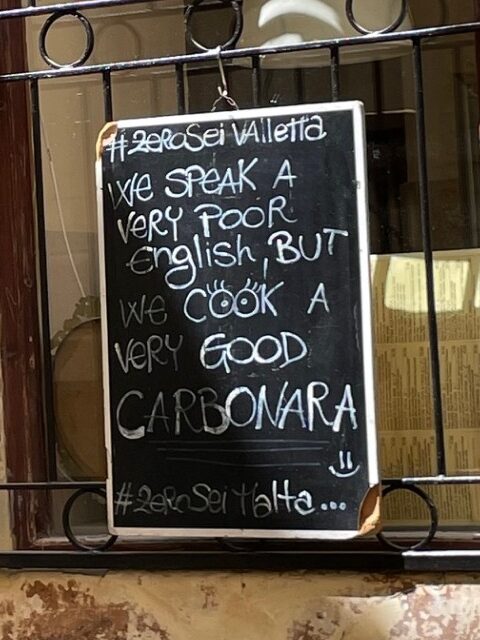 #ZeroSei Valletta
WE SPEAK A
VERY POOR
English, BUT
WE COOK A
VERY GOOD
CARBONARA
#ZeroSei Malta...